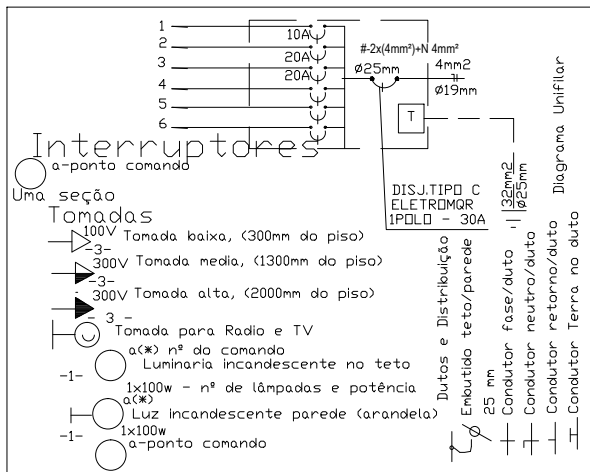 1
10A
2
20A
3
20A
4
5
6
#-2x(4mm²)+N 4mm²
Ø25mm
4mm2
Ø19mm
T
DISJ.TIPO C
ELETROMQR
1POLO - 30A
32mm2
Ø25mm
Diagrama Unifilar
Interruptores
a-ponto comando
Uma seção
Tomadas
100V
-3-
Tomada baixa, (300mm do piso)
300V
-3-
Tomada media, (1300mm do piso)
300V
- 3 -
Tomada alta, (2000mm do piso)
Tomada para Radio e TV
a(*) nº do comando
-1-
Luminaria incandescente no teto
1x100w - nº de lâmpadas e potência
a(*)
-1-
Luz incandescente parede (arandela)
1x100w
a-ponto comando
Dutos e Distribuição
Embutido teto/parede
25 mm
Condutor fase/duto
Condutor neutro/duto
Condutor retorno/duto
Condutor Terra no duto